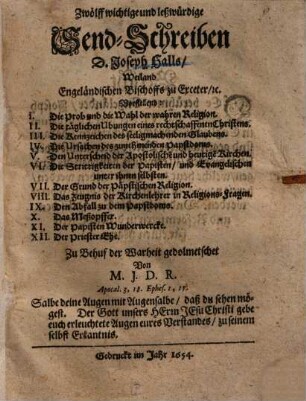 Zwölff wichtige und leßwürdige
Send-Schreiben
D. Joseph Halls/
Weiland
Engeländischen Bischoffs zu Exceter/ ꝛc.
I. Die Prob und die Wahl der wahren Religion.
II. Die täglichen Übungen eines rechtschaffenen Christens.
III. Die Kennzeichen des seeligmachenden Glaubens.
IV. Die Ursachen des zunehmenden Papstdoms.
V. Den Unterscheid der Apostolisch und heutige Kirchen.
VI. Die Strittigkeiten der Papisten/ und Evangelischen
unter ihnen selbsten.
VII. Der Grund der Päpstischen Religion.
VIII. Das Zeugnis der Kirchenlehrer in Religions-Fragen.
IX. Den Abfall zu dem Papstdoms.
X. Das Meßopffer.
XI. Der Papisten Wunderwerck.
XII. Der Priester Ehe.
Zu Behuf der Warheit gedolmetschet
Von
M. J. D. R.
Apocal. 3, 18. Ephes. 1, 17.
Salbe deine Augen mit Augensalbe/ daß du sehen mö-
gest. Der Gott unsers HErrn JEsu Christi gebe
euch erleuchtete Augen eures Verstandes/ zu seinem
selbst Erkantnis.
Gedruckt im Jahr 1654.